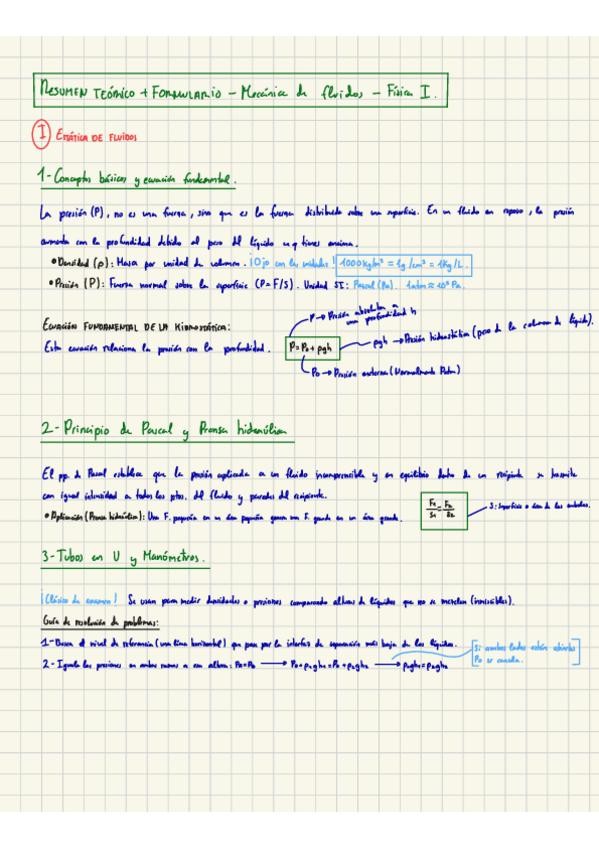 RESUMEN TEÓRICO + FORMULARIO - Mecánica de fluidos - Física I.
I ESTÁTICA DE FLUIDOS
1- Conceptos básicos y ecuación fundamental.
La presión (P), no es una fuerza, sino que es la fuerza distribuida sobre una superficie. En un fluido en reposo, la presión
aumenta con la profundidad debido al peso del líquido que tienes encima.
• Densidad (ρ): Masa por unidad de volumen. ¡Ojo con las unidades! 1000 kg/m³ = 1g/cm³ = 1Kg/L.
• Presión (P): Fuerza normal sobre la superficie (P = F/S). Unidad SI: Pascal (Pa). 1atm ≈ 10⁵ Pa.
P → Presión absoluta a
una profundidad h
ECUACIÓN FUNDAMENTAL DE LA HIDROSTÁTICA:
Esta ecuación relaciona la presión con la profundidad.
P = P₀ + ρgh
ρgh → Presión hidrostática (peso de la columna de líquido).
P₀ → Presión externa (Normalmente Patm)
2- Principio de Pascal y Prensa hidráulica
El pp. de Pascal establece que la presión aplicada a un fluido incompresible y en equilibrio dentro de un recipiente se transmite
con igual intensidad a todos los ptos. del fluido y paredes del recipiente.
• Aplicación (Prensa hidráulica): Una F. pequeña en un área pequeña genera una F. grande en un área grande.
F₁/S₁ = F₂/S₂
S: Superficie o área de los émbolos.
3- Tubos en U y Manómetros.
¡Clásico de examen! Se usan para medir densidades o presiones comparando alturas de líquidos que no se mezclan (inmiscibles).
Guía de resolución de problemas:
1- Busca el nivel de referencia (una línea horizontal) que pasa por la interfaz de separación más baja de los líquidos.
2- Iguala las presiones en ambas ramas a esa altura:
Si ambos lados están abiertos
P₀ se cancela.